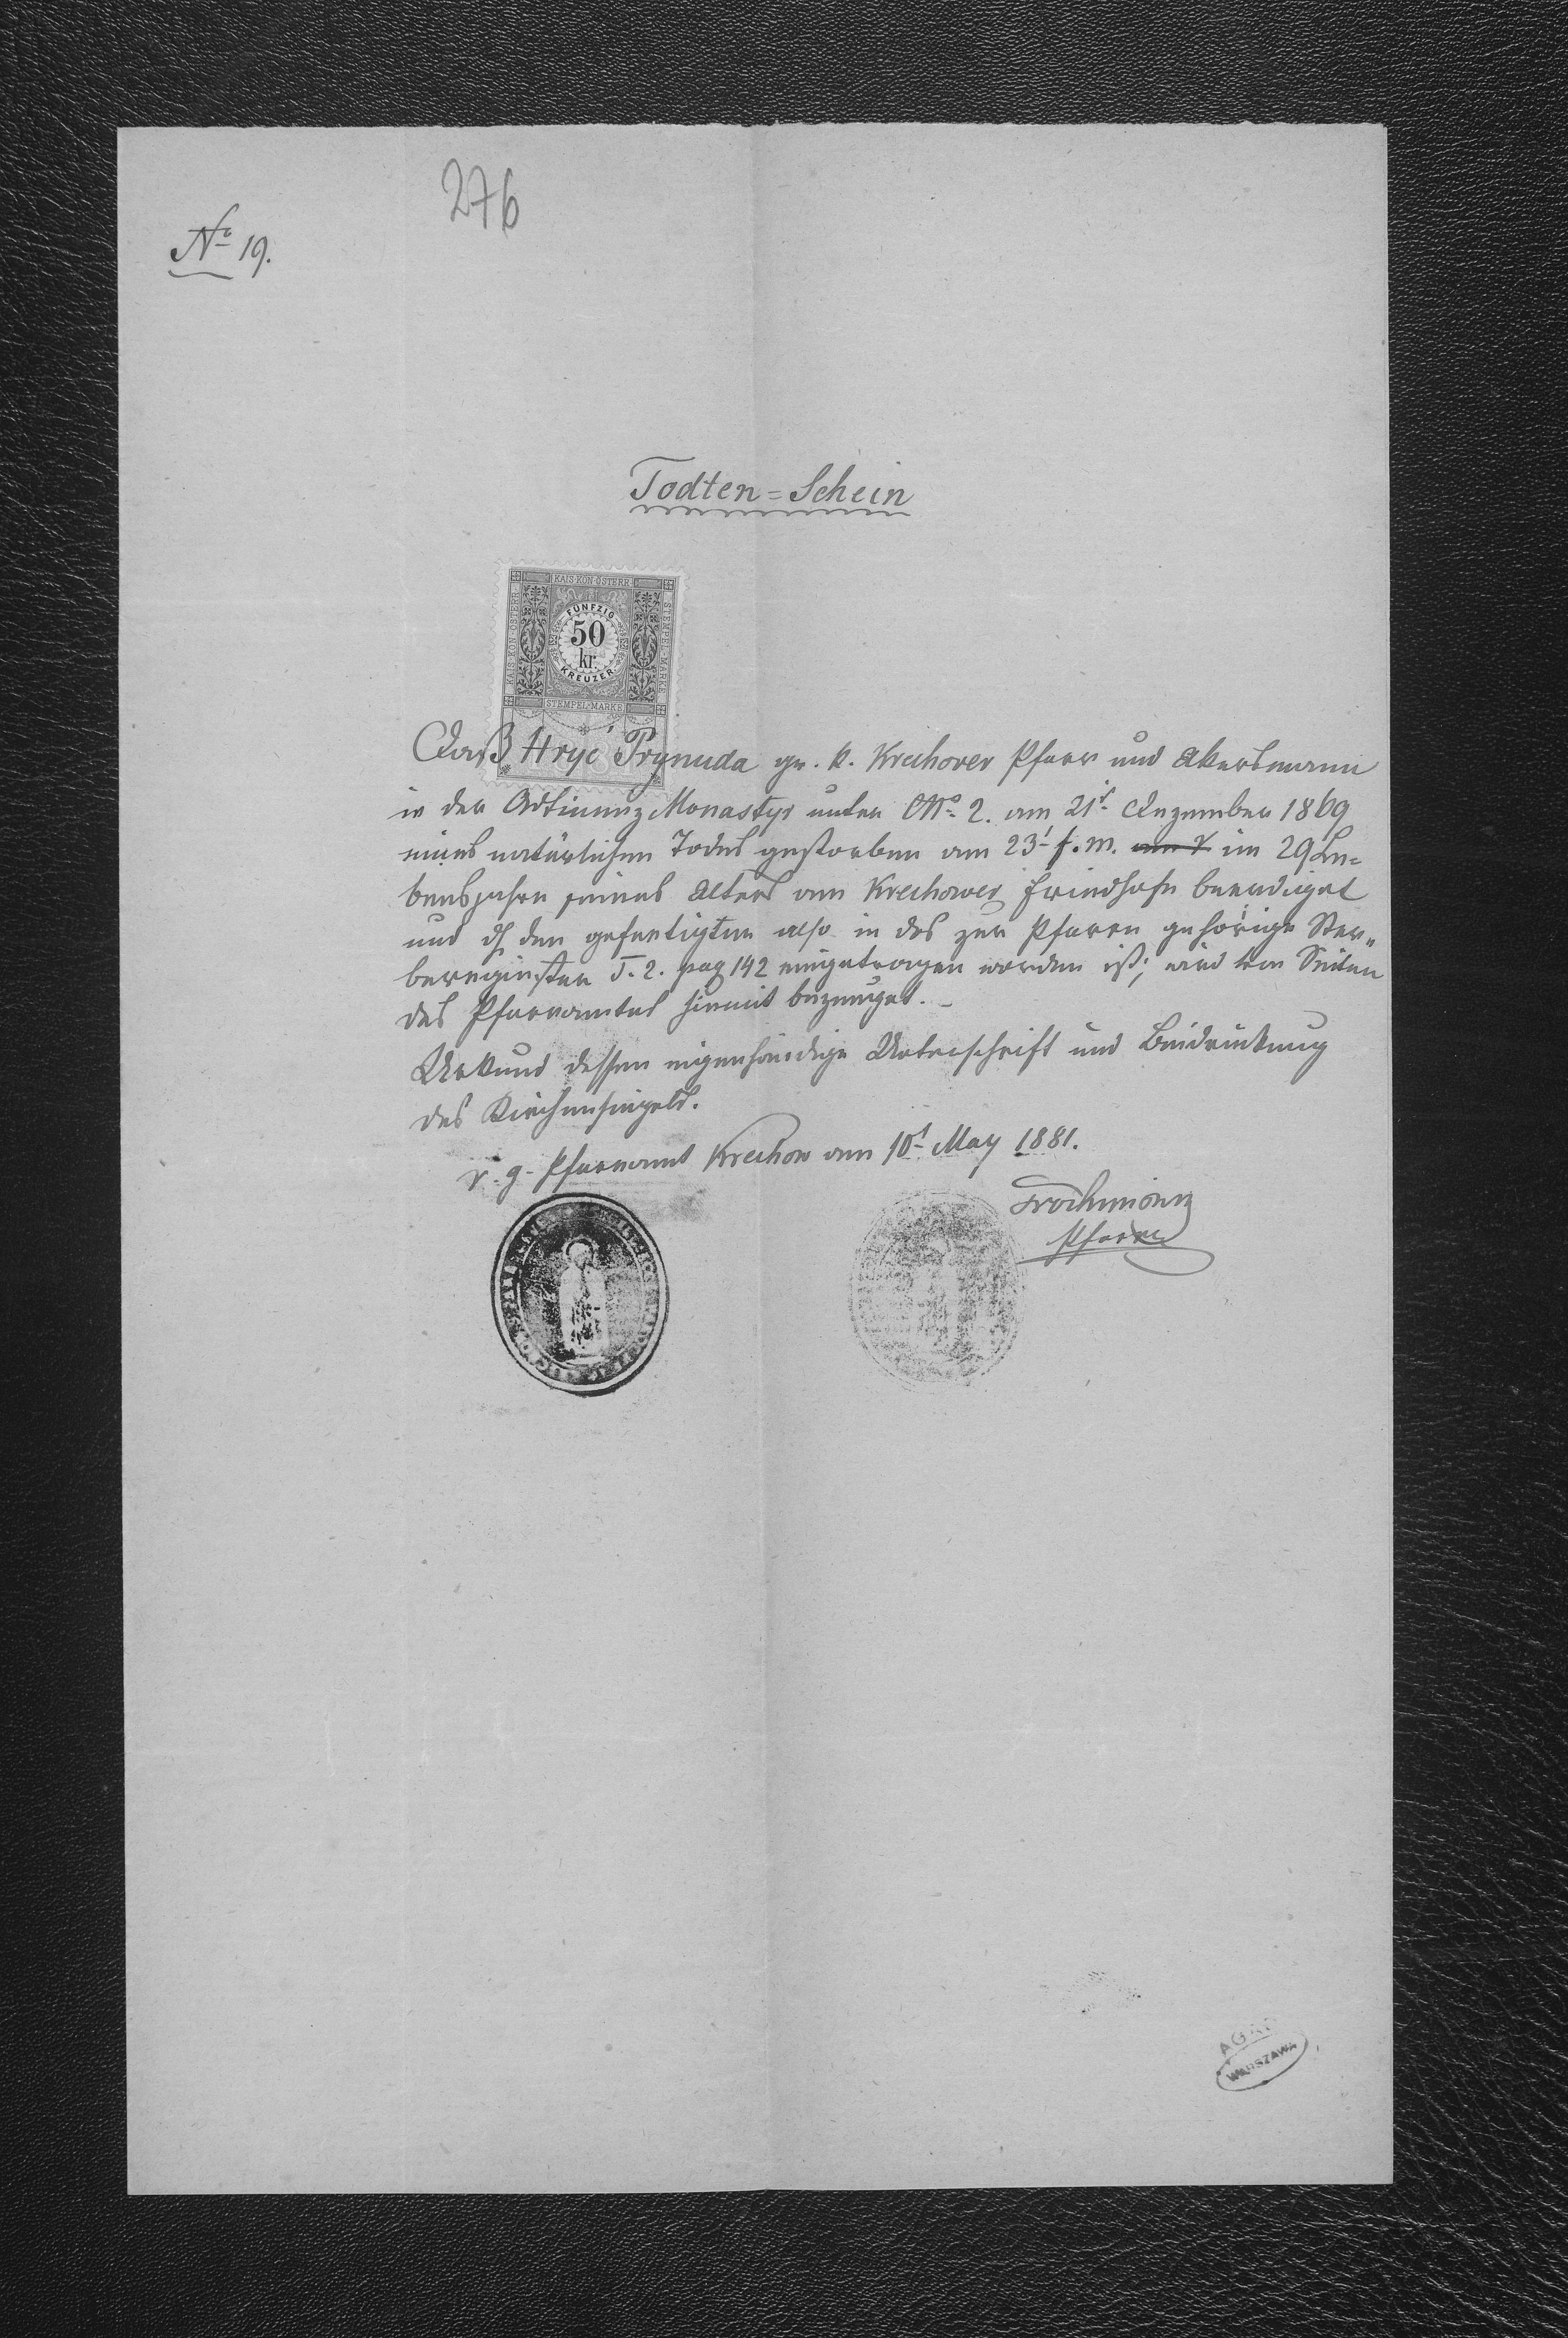 276
No 19.
Todten=Schein
KAIS. KÖN. ÖSTERR.
KAIS. KÖN. ÖSTERR.
STEMPEL-MARKE
FÜNFZIG
50
kr.
KREUZER
STEMPEL-MARKE
Daß Hryć Prynuda gr. k. Krechover Pfarr und Akersmann
in der Adtinenz Monastyr unter CNo 2. am 21t Dezember 1869
eines natürlichen Todes gestorben am 23t f. M. im 29 Le=
bensjahre seines Alters am Krechower Friedhofe beerdiget
und dh den gefertigten also in das zur Pfarre gehörige Ster„
beregister T. 2. pag 142 eingetragen worden ist; wird von Seiten
des Pfarramtes hiemit bezeuget.
Urkund dessen eigenhändige Unterschrift und Beidrückung
des Kirchensiegels.
r. g. Pfarramt Krechow am 10t May 1881.
Pfarrer
AGAD
WARSZAWA